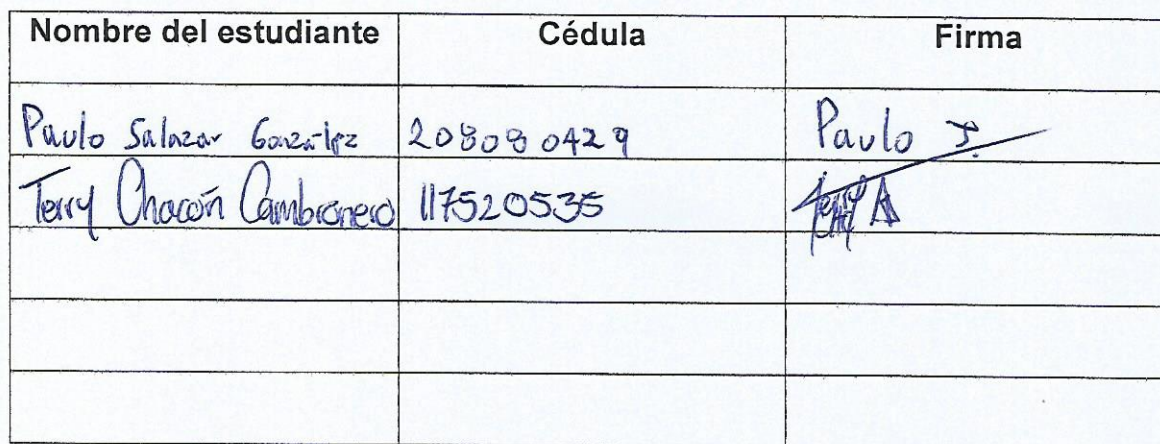 Nombre del estudiante Cédula Firma
Paulo Salazar González 208080429 Paulo S.
Terry Chacón Cambronero 117520535